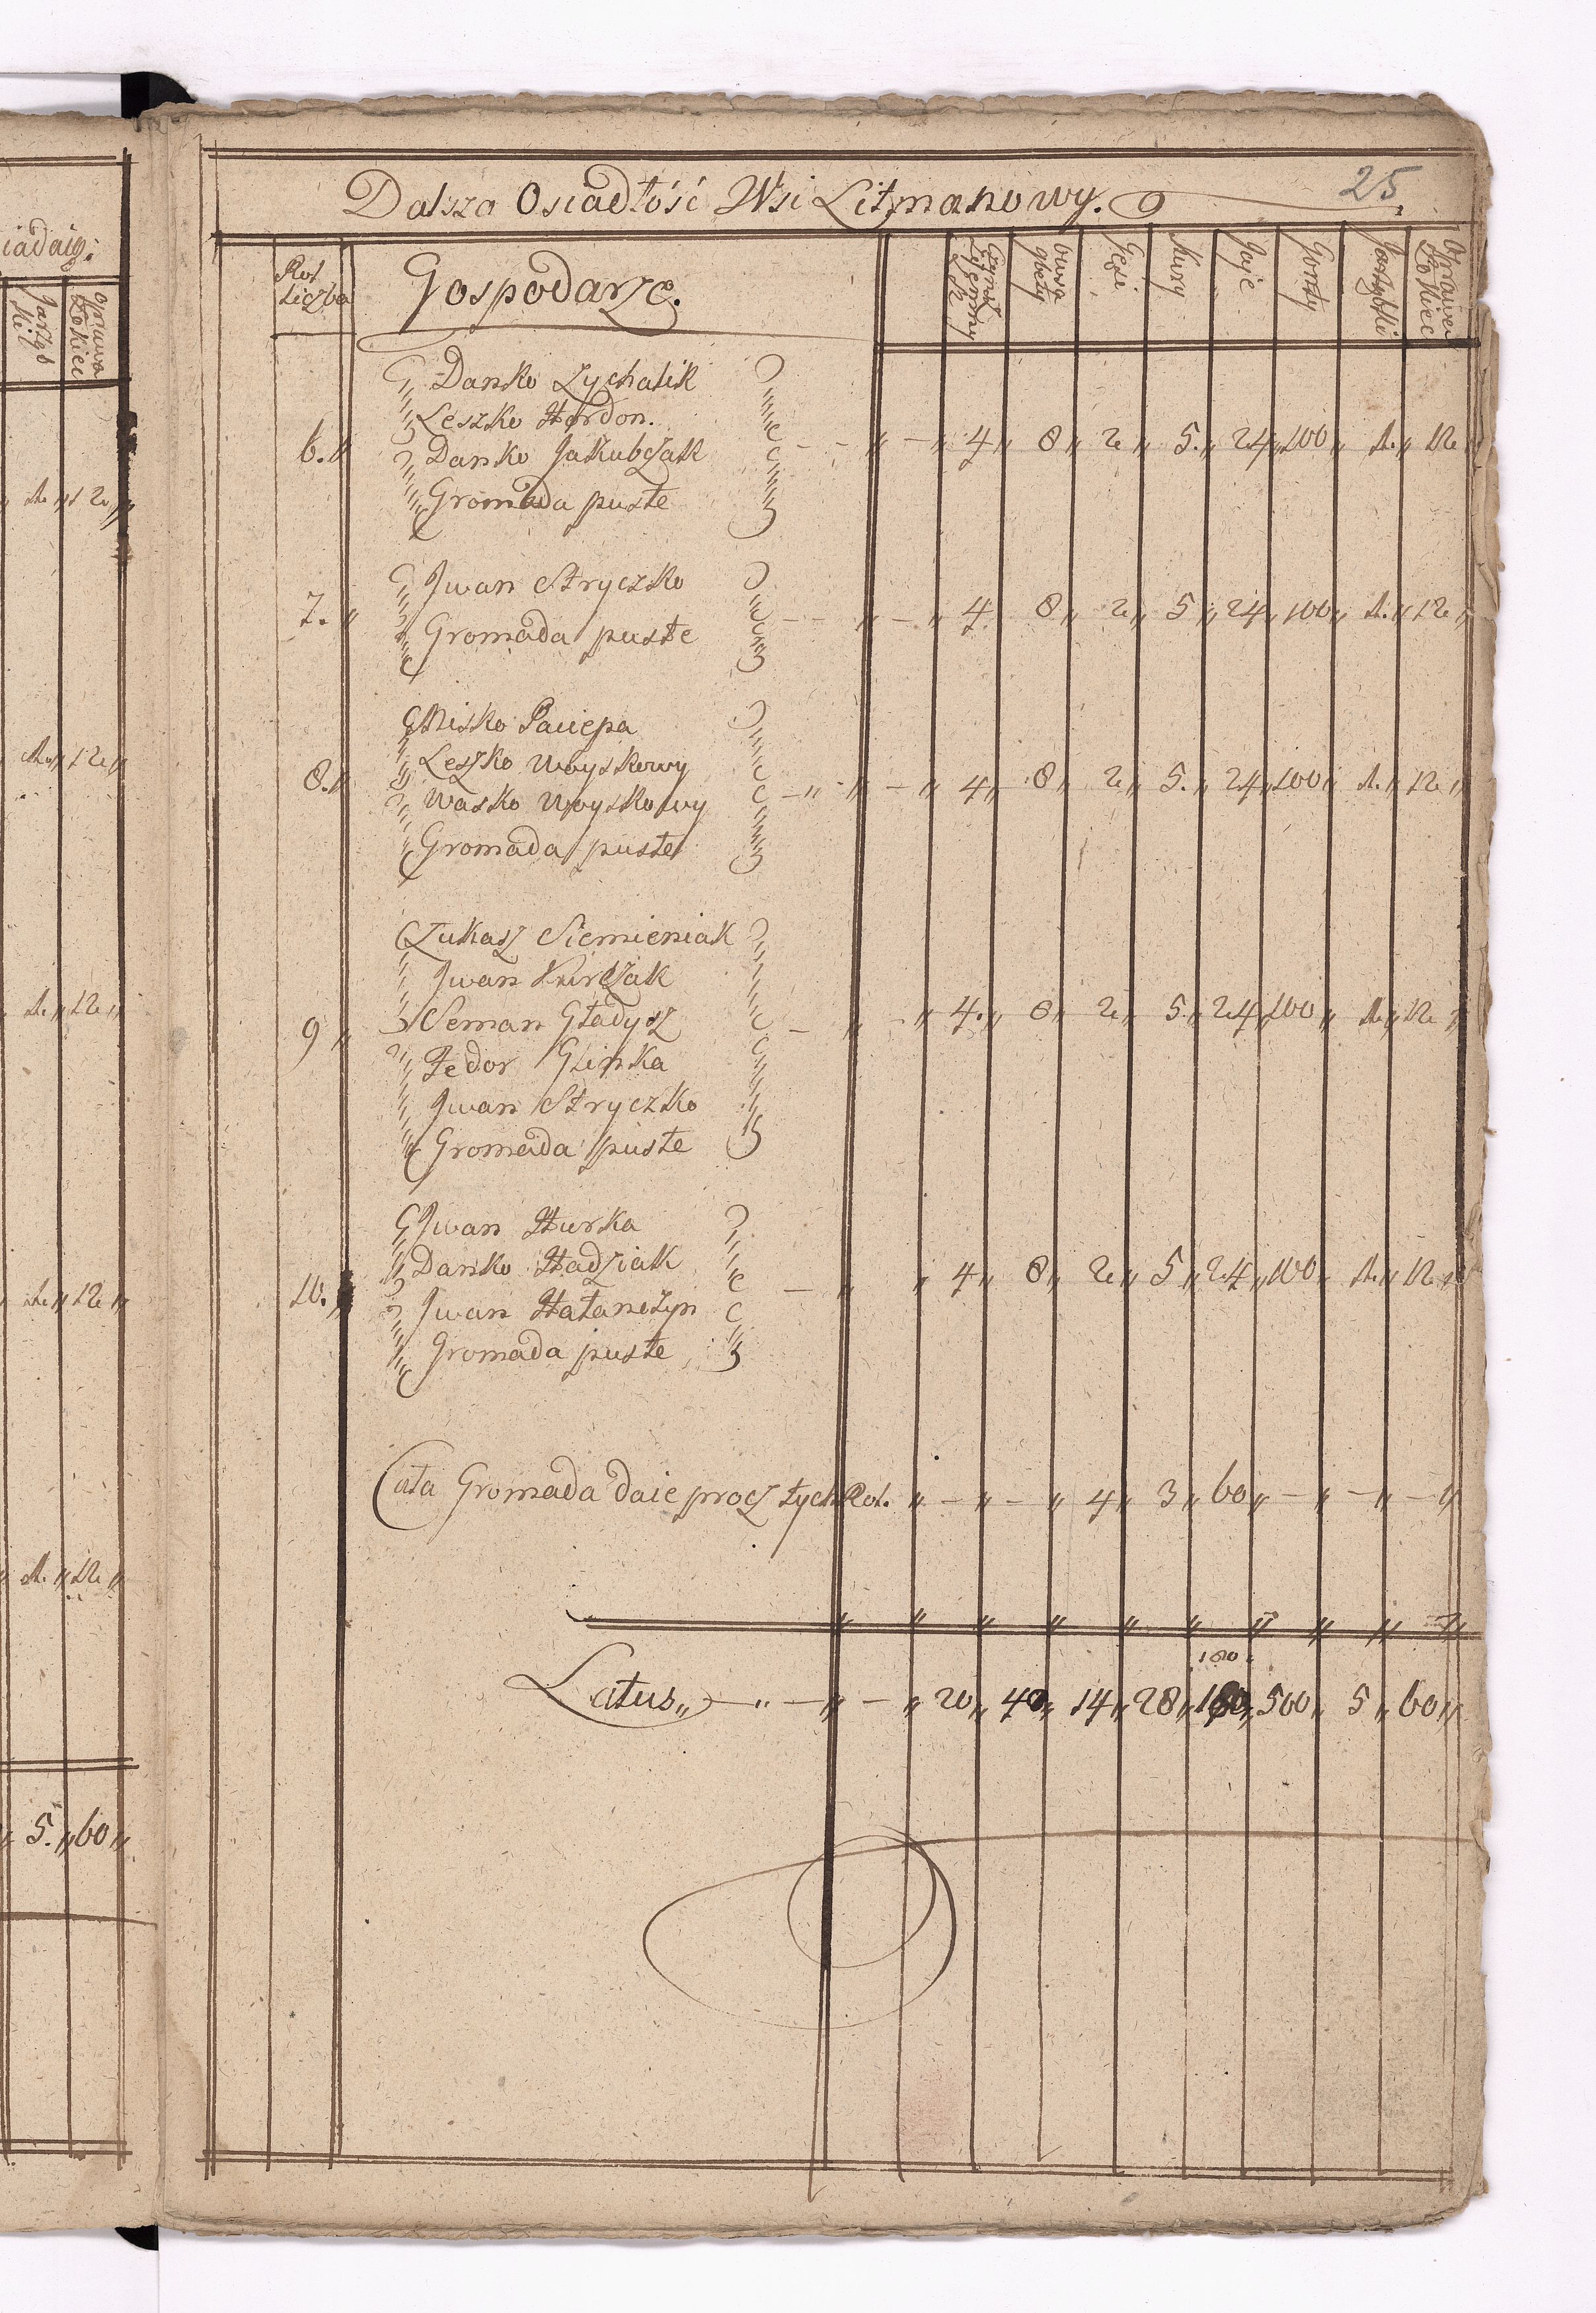 iadaią:
Jarząb
ki
oprawa
Łokiec
1. 12
1. 12
1. 12
1. 12
1. 12
5. 60
25.
Dalsza Osiadłość Wsi Litmanowy.
Rol
Liczba
Gospodarze.
Czynsz
Ziemny
owsa
Gęsi
Kury
Jaje
Jarząbki
oprawa
Łokiec
Danko Zychalik
Leszko Hordon.
6. Danko Jakubczak 4 8 2 5. 24 100 1. 12
Gromada puste
Jwan Stryczko
7. Gromada puste 4 8 2 5 24 100 1. 12
Misko Paciepa
Leszko Woyskowy
8. Wasko Woyskowy 4 8 2 5. 24 100 1. 12
Gromada puste
Łukasz Siemieniak
Jwan
9 Seman Gładysz 4. 8 2 5. 24 100 1. 12
Fedor Glinka
Jwan Stryczko
Gromada puste
Jwan Hurka
Danko Hadziak
10. Jwan 4 8 2 5 24 100 1. 12
Gromada puste
Cała Gromada daie procz tych Rol. 4 3 60
180
Latus 20 40 14 28 180 500 5 60